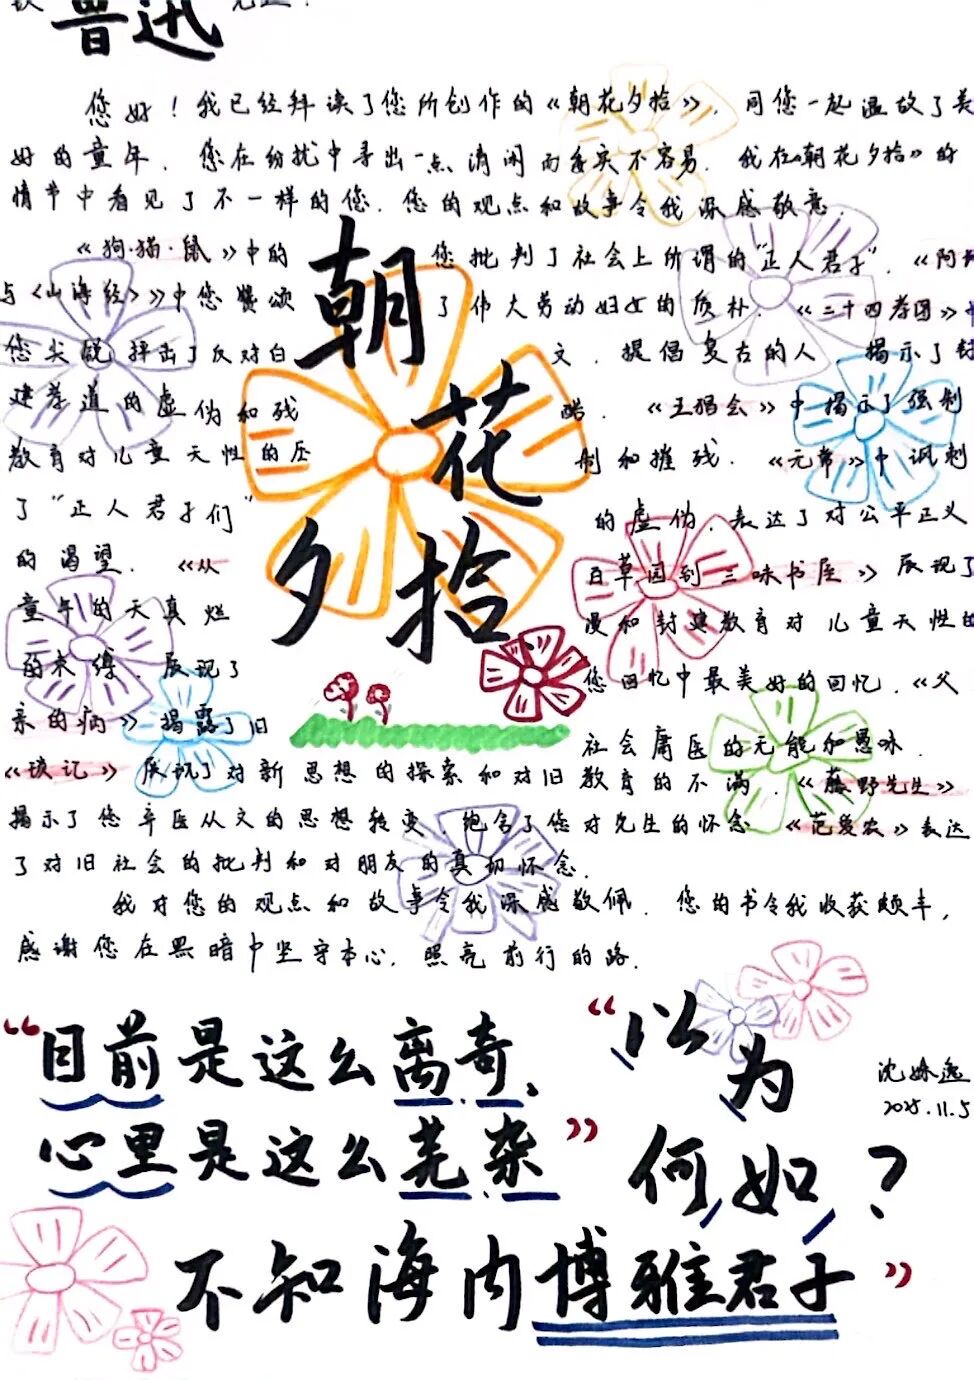 鲁迅
您好！我已经拜读了您所创作的《朝花夕拾》，同您一起温故了美
好的童年．您在纷扰中寻出一点清闲而委实不容易．我在《朝花夕拾》的
情节中看见了不一样的您．您的观点和故事令我深感敬意．
《狗·猫·鼠》中的您批判了社会上所谓的“正人君子”．《阿长
与《山海经》》中您赞颂了伟大劳动妇女的质朴．《二十四孝图》中
您尖锐抨击了反对白文．提倡复古的人．揭示了封
建孝道的虚伪和残酷．《五猖会》中揭示了强制
教育对儿童天性的压制和摧残．《无常》中讽刺
了“正人君子们”的虚伪．表达了对公平正义
的渴望．《从百草园到三味书屋》展现了
童年的天真烂漫和封建教育对儿童天性的
的束缚．展现了您回忆中最美好的回忆．《父
亲的病》揭露了旧社会庸医的无能和愚昧．
《琐记》展现了对新思想的探索和对旧教育的不满．《藤野先生》
揭示了您弃医从文的思想转变．饱含了您对先生的怀念《范爱农》表达
了对旧社会的批判和对朋友的真切怀念．
我对您的观点和故事令我深感敬佩．您的书令我收获颇丰，
感谢您在黑暗中坚守本心．照亮前行的路．
朝花夕拾
“目前是这么离奇、
心里是这么芜杂”
“以为
何如？
不知海内博雅君子”
2025.11.5